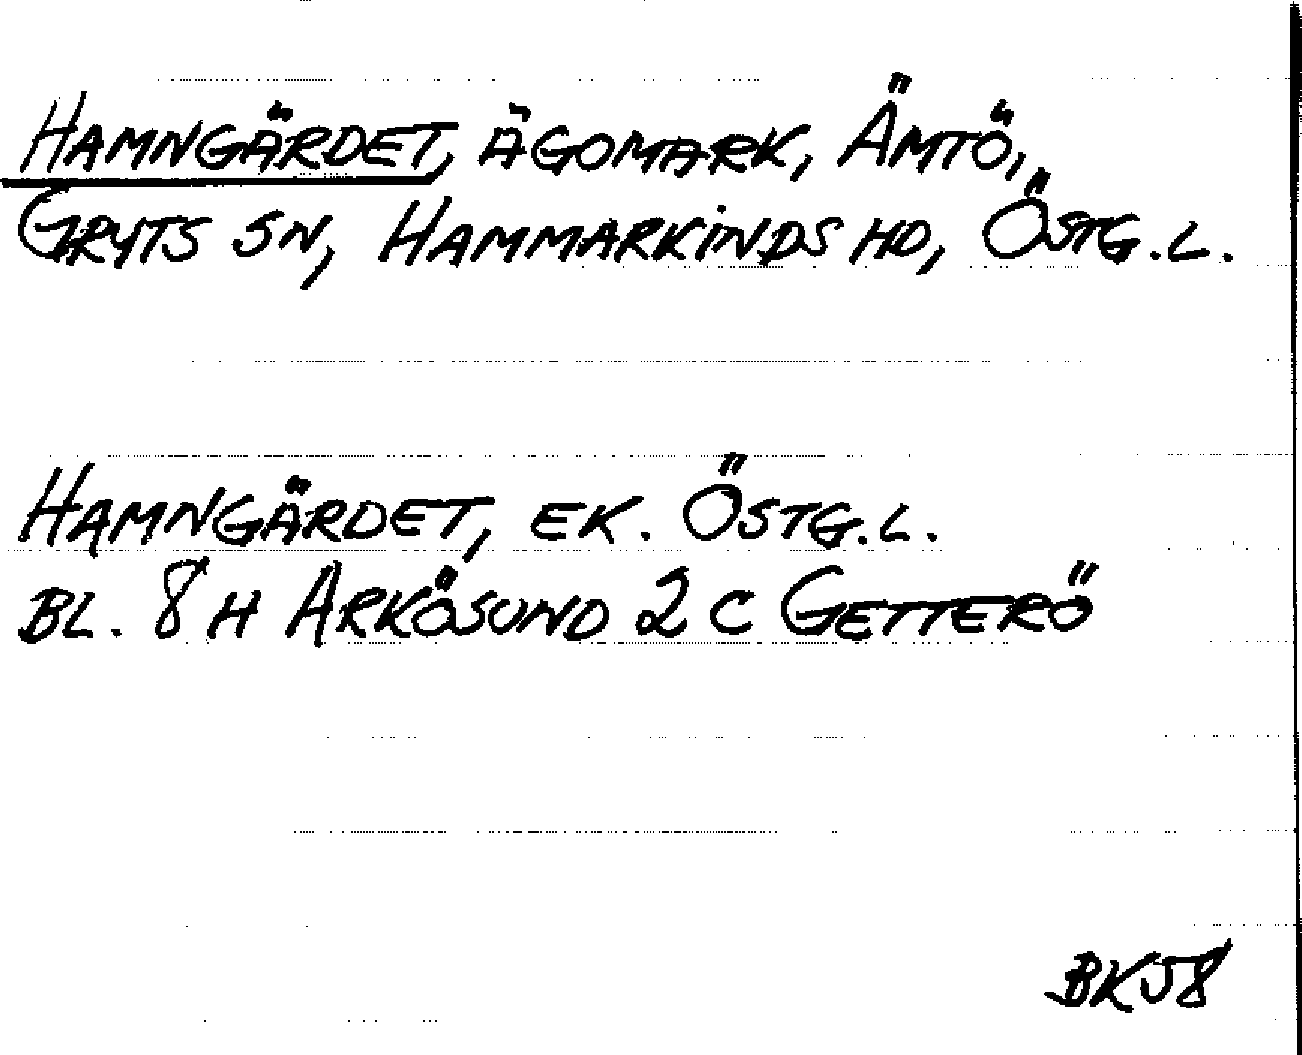 HAMNGÄRDET, ÄGOMARK, ÄMTÖ,
GRYTS SN, HAMMARKINDS HD, ÖSTG.L.
HAMNGÄRDET, EK. ÖSTG.L.
BL. 8 H ARKÖSUND 2 C GETTERÖ
BKJ8